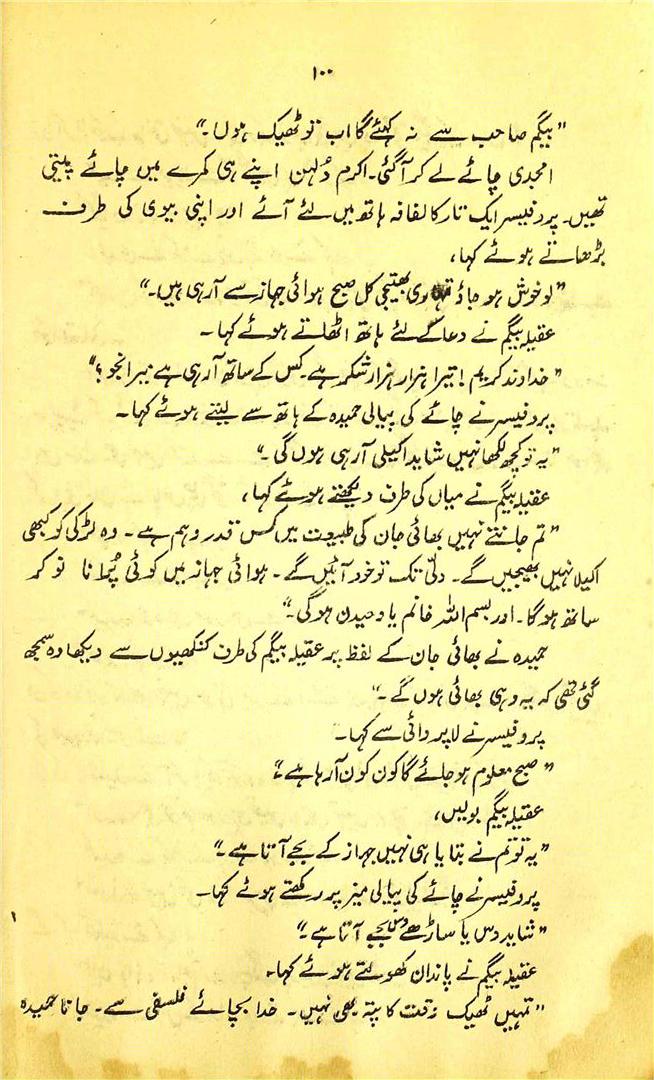 ۱۰۰
”بیگم صاحب سے نہ کہئے گا اب تو ٹھیک ہوں۔“
امجدی چائے لے کر آگئی۔ اکرم دُلہن اپنے ہی کمرے میں چائے پیتی
تھیں۔ پروفیسر ایک تار کا لفافہ ہاتھ میں لئے آئے اور اپنی بیوی کی طرف
بڑھاتے ہوئے کہا،
”لو خوش ہو جاؤ تمہاری بھتیجی کل صبح ہوائی جہاز سے آرہی ہیں۔“
عقیلہ بیگم نے دعا کے لئے ہاتھ اٹھاتے ہوئے کہا۔
”خداوند کریم! تیرا ہزار ہزار شکر ہے۔ کس کے ساتھ آرہی ہے میرا نجو؟“
پروفیسر نے چائے کی پیالی حمیدہ کے ہاتھ سے لیتے ہوئے کہا۔
”یہ تو کچھ لکھا نہیں شاید اکیلی آرہی ہوں گی۔“
عقیلہ بیگم نے میاں کی طرف دیکھتے ہوئے کہا،
”تم جانتے نہیں بھائی جان کی طبیعت میں کس قدر وہم ہے۔ وہ لڑکی کو کبھی
اکیلا نہیں بھیجیں گے۔ دلّی تک تو خود آئیں گے۔ ہوائی جہاز میں کوئی پُرانا نوکر
ساتھ ہوگا۔ اور بسم اللہ خانم یا وحیدن ہوگی۔“
حمیدہ نے بھائی جان کے لفظ پر عقیلہ بیگم کی طرف کنکھیوں سے دیکھا وہ سمجھ
گئی تھی کہ یہ وہی بھائی ہوں گے۔“
پروفیسر نے لاپروائی سے کہا۔
”صبح معلوم ہو جائے گا کون کون آرہا ہے۔“
عقیلہ بیگم بولیں،
”یہ تو تم نے بتایا ہی نہیں جہاز کے بجے آتا ہے۔“
پروفیسر نے چائے کی پیالی میز پر رکھتے ہوئے کہا۔
”شاید دس یا ساڑھے دس بجے آتا ہے۔“
عقیلہ بیگم نے پاندان کھولتے ہوئے کہا۔
”تمہیں ٹھیک وقت کا پتہ بھی نہیں۔ خدا بچائے فلسفی سے۔ جانا حمیدہ